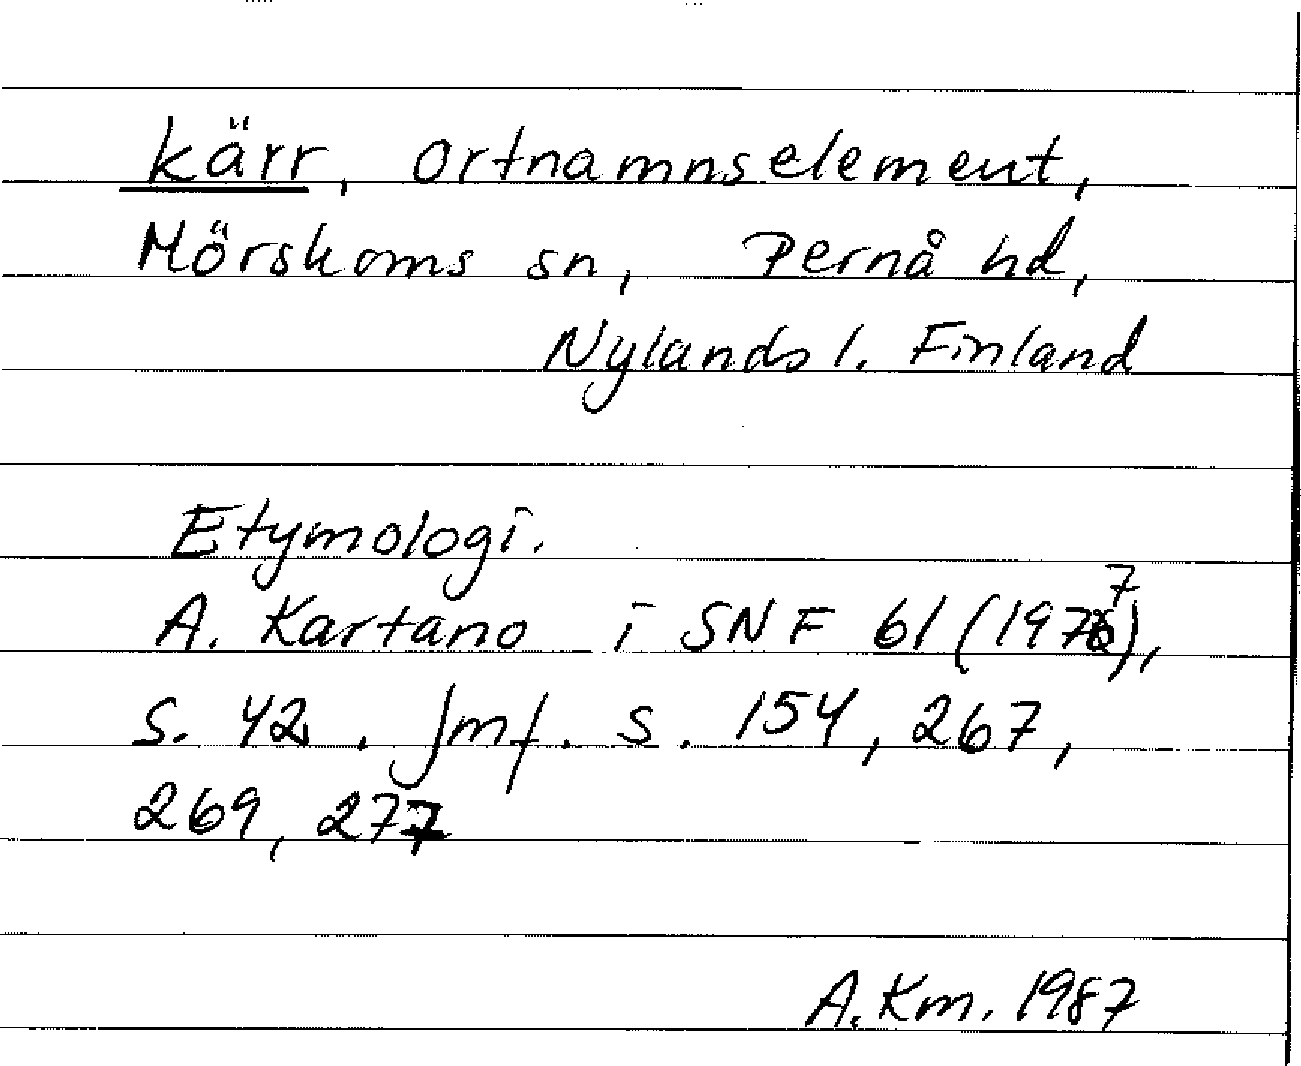 kärr, ortnamnselement,
Mörskoms sn, Pernå hd,
Nylands l. Finland
Etymologi.
A. Kartano i SNF 61 (1977),
s. 42. Jmf. s. 154, 267,
269, 277
A. Km. 1987